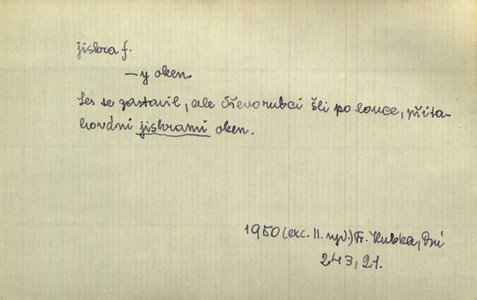 jiskra f.
—y oken
Les se zastavil, ale dřevorubci šli po louce, přita-
hováni jiskrami oken.
1950 (exc. II. vyd.) Fr. Kubka, Dni
243, 21.